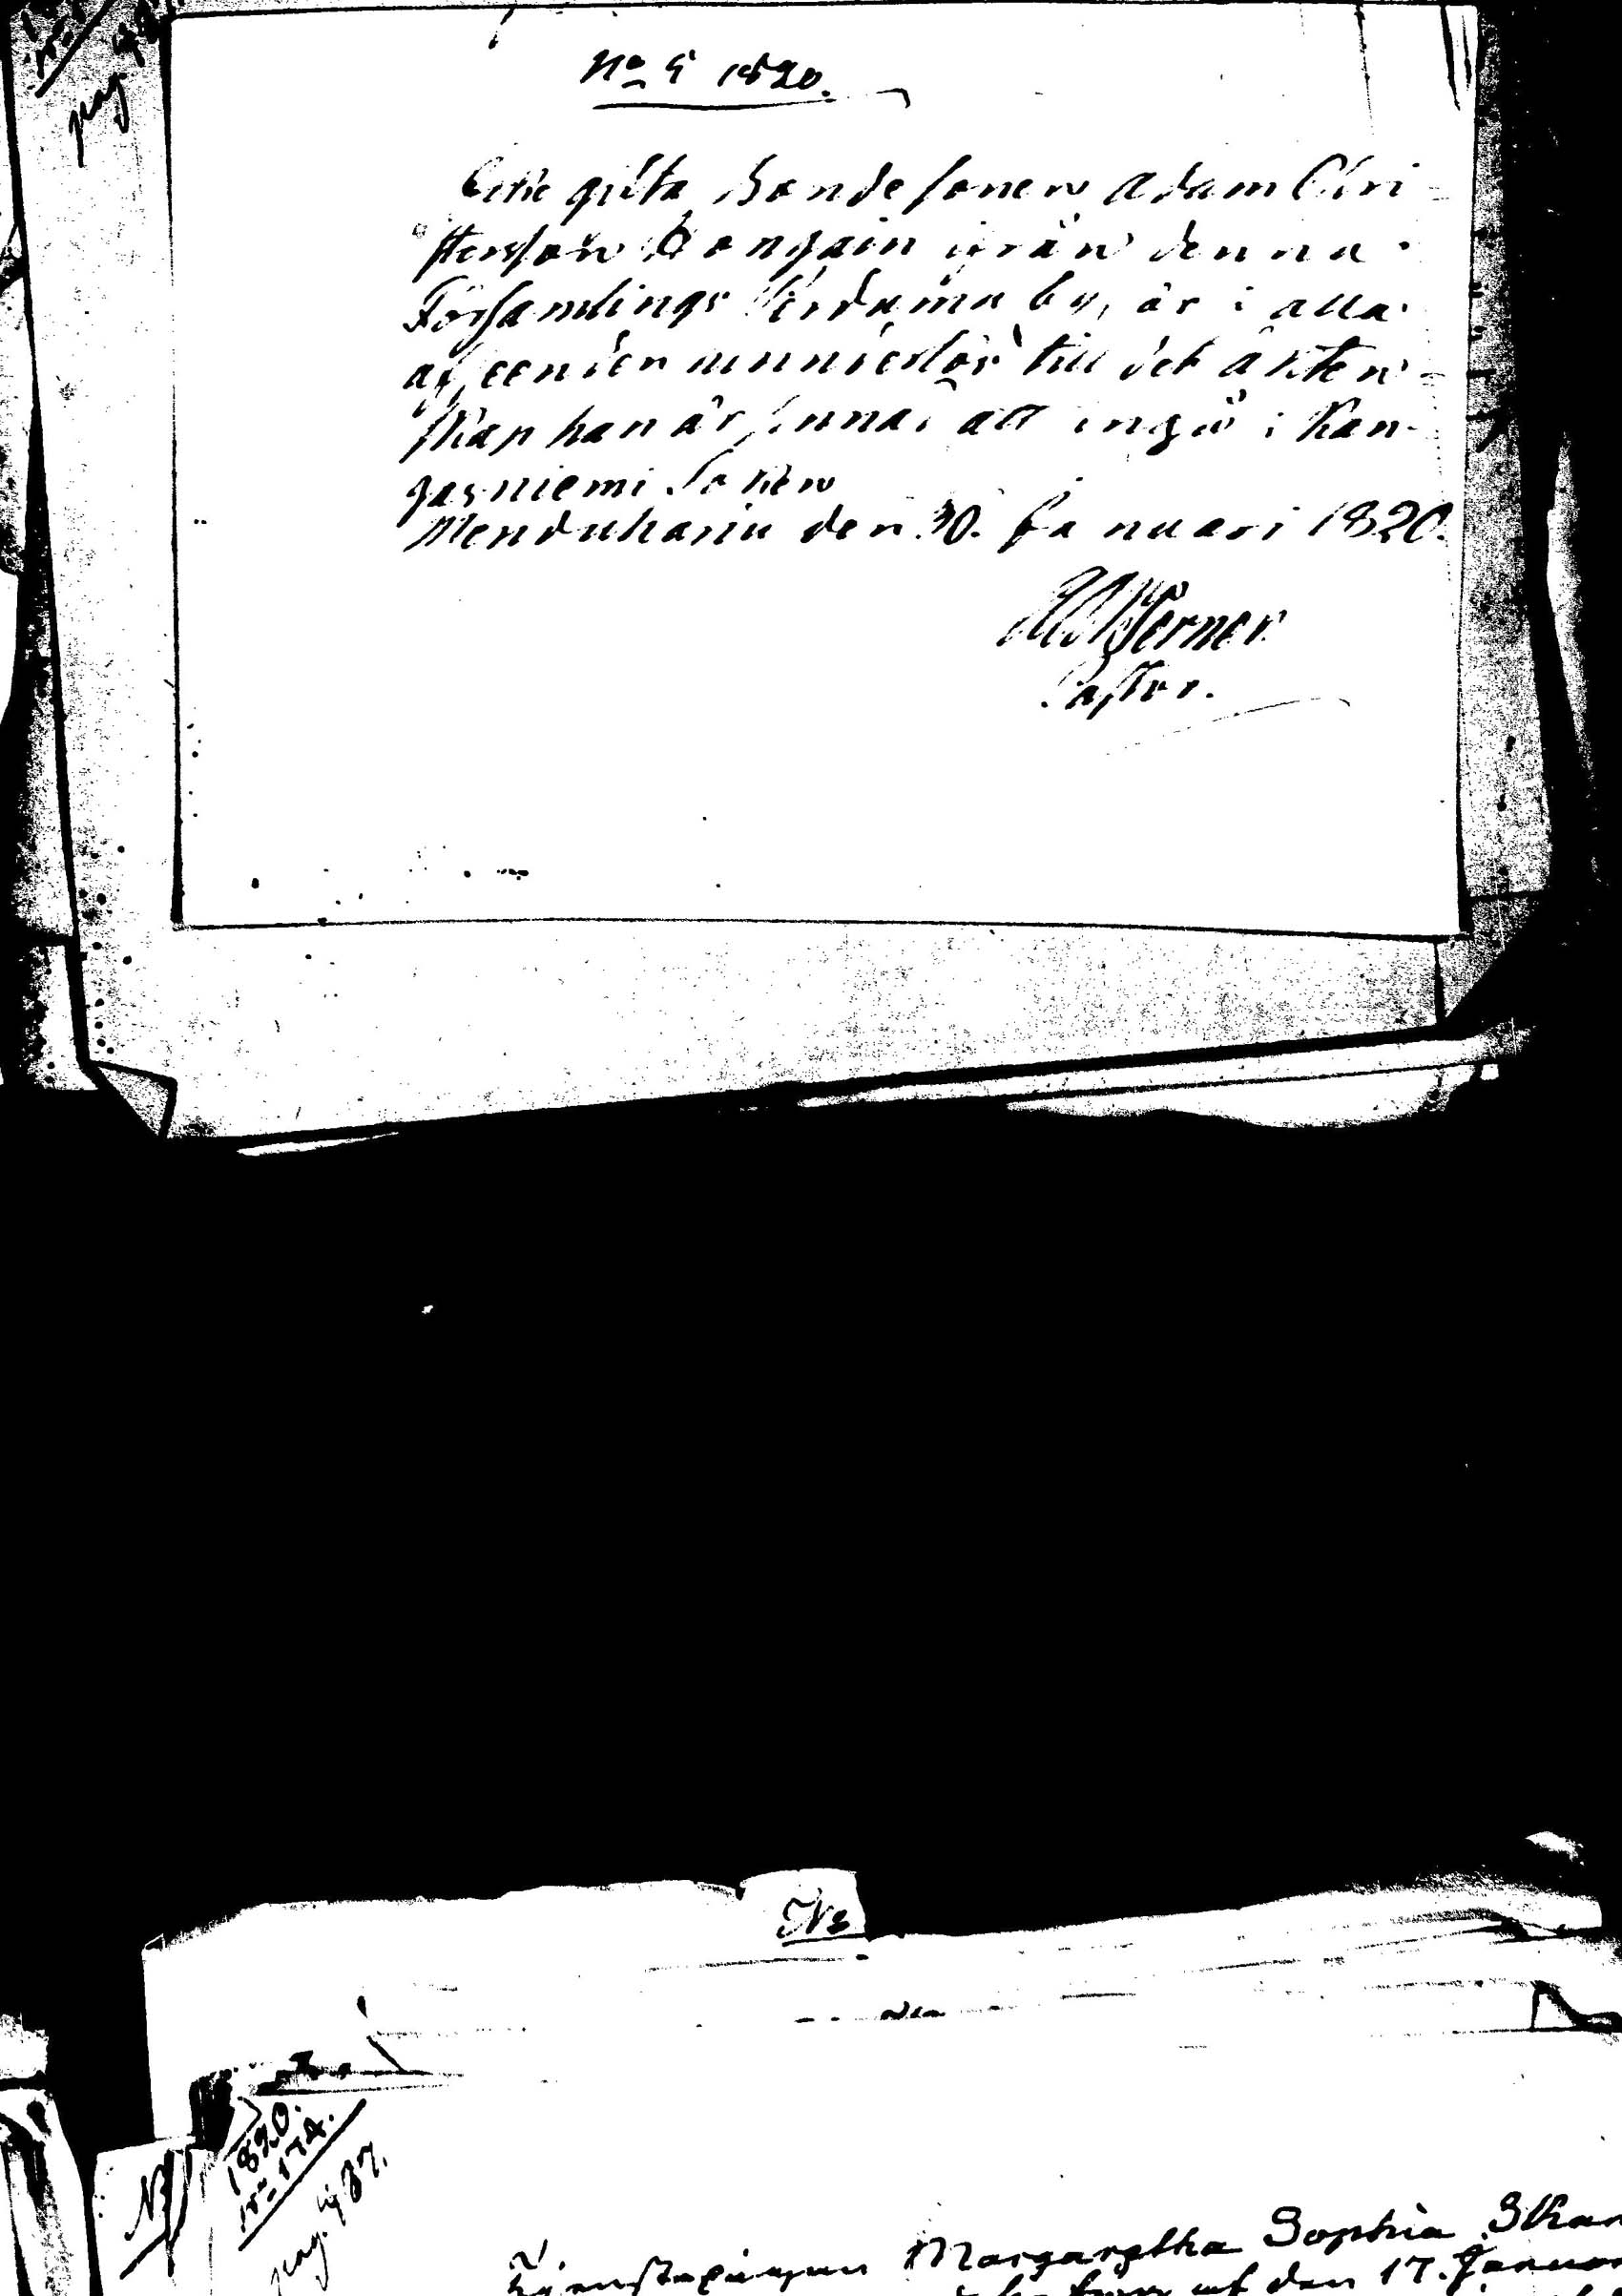 No 5 1820.
Ogifta Bondesonen Adam Chri-
stersson Hongain ifrån denna
Församlings by, är i alla
afseenden hinnderlös till det äkten-
skap han är sinnad att ingå i Kan-
gasniemi Soken
Menduhariu den 30. Januari 1820.
Werner
Pastor.
No
1820.
No 174.
pag. 437.
Margaretha Sophia
af den 17. Januar